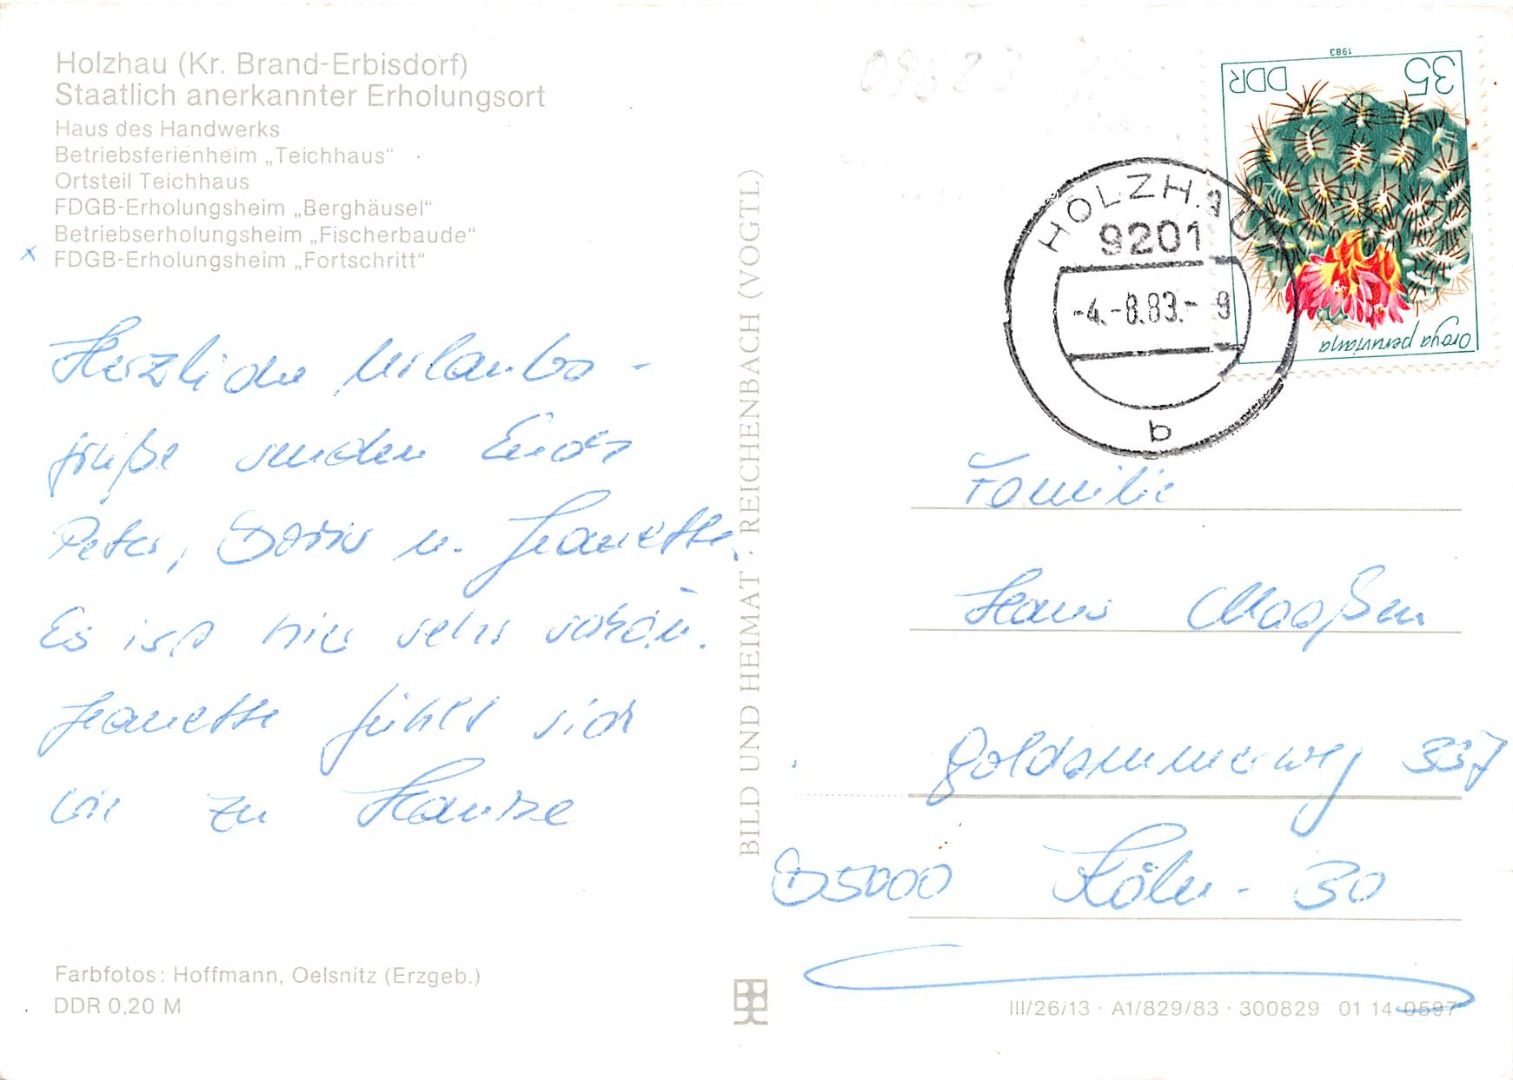 Holzhau (Kr. Brand-Erbisdorf)
Staatlich anerkannter Erholungsort
Haus des Handwerks
Betriebsferienheim „Teichhaus“
Ortsteil Teichhaus
FDGB-Erholungsheim „Berghäusel“
Betriebserholungsheim „Fischerbaude“
x FDGB-Erholungsheim „Fortschritt“
Herzliche Urlaubs-
grüße senden Euch
Peter, Doris u. Jeanette.
Es ist hier sehr schön.
Jeanette fühlt sich
wie zu Hause
Farbfotos: Hoffmann, Oelsnitz (Erzgeb.)
DDR 0,20 M
BILD UND HEIMAT · REICHENBACH (VOGTL)
1983
DDR 35
Oroya peruviana
HOLZHAU
9201
-4.-8.83.- 9
b
Familie
Hans Maaßen
Goldammerweg 337
D5000 Köln - 30
III/26/13 · A1/829/83 · 300829 01 14 0597